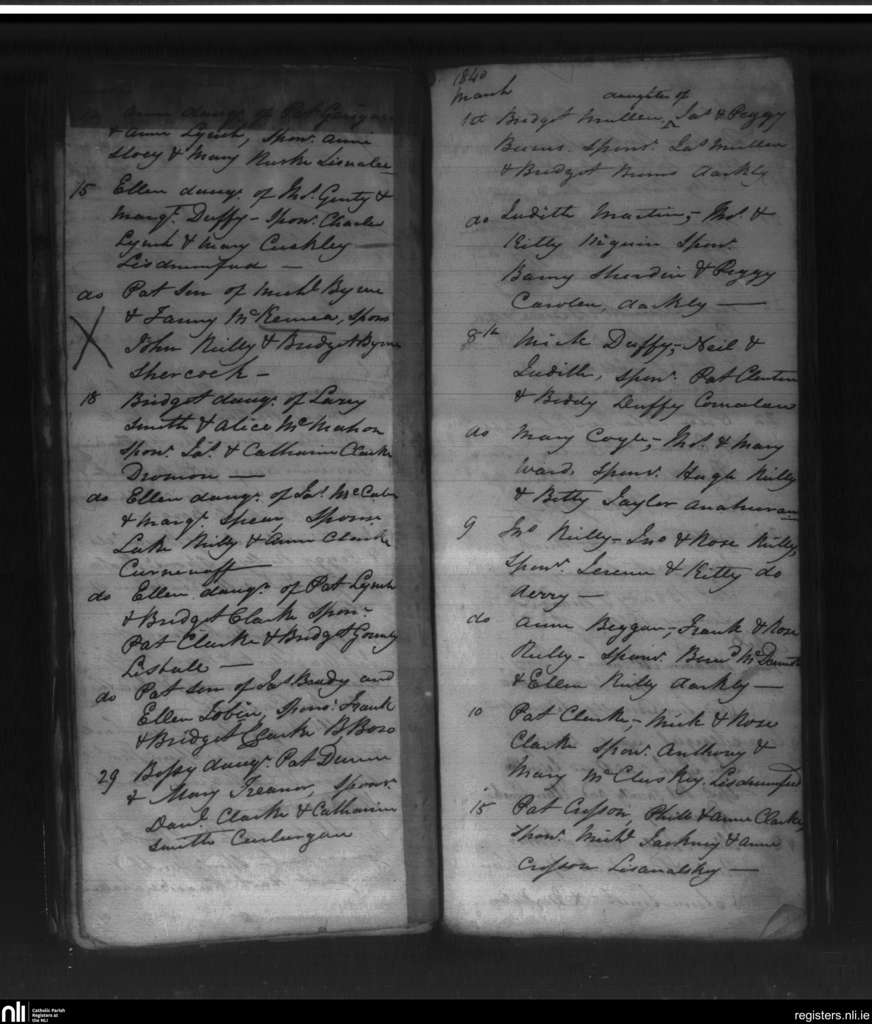 Anne daugr. of Pat
& Anne Lynch, Sponr. Anne
& Mary Burke
15 Ellen daugr. of Thos. Ginty &
Margt. Duffy - Sponr. Charles
Lynch & Mary Cuckley
Lisdrumfad —
do Pat Son of Michl. Byrne
& Fanny McKenna, Sponr
John Reilly & Bridget Byrne
Shercock —
18 Bridget daugr. of Larry
Smith & Alice McMahon
Sponr. Jas. & Catharine Clarke
—
do Ellen daugr. of Jas. McCabe
& Margt. Spear, Sponr.
Luke Reilly & Anne Clarke
do Ellen daugr. of Pat Lynch
& Bridget Clarke Sponr.
Pat Clarke & Bridget
—
do Pat Son of Jas. Brady and
Ellen Tobin, Sponr. Frank
& Bridget Clarke
29 Bessy daugr. Pat
& Mary Treanor, Sponr.
Danl. Clarke & Catharine
Smith
1840
March
daughter of
1st Bridget Mullen, Jas. & Peggy
Burns. Sponr. Jas. Mullen
& Bridget Burns Darkly
do Judith Martin,- Thos. &
Kitty Sponr.
Barny & Peggy
Carolan, darkly —
8th Mick Duffy,- Neil &
Judith, Sponr. Pat Clinton
& Biddy Duffy
do Mary Coyle,- Thos. & Mary
Ward Sponr. Hugh Reilly
& Betty Taylor
9 Jno. Reilly - Jno & Rose Reilly,
Sponr. & Kitty do
Derry —
do Anne Beggan,- Frank & Rose
Reilly - Sponr.
& Ellen Reilly darkly —
10 Pat Clarke,- Mick & Rose
Clarke Sponr. Anthony &
Mary McCluskey. Lisdrumfad
15 Pat Crosson, Phill & Anne Clarke,
Sponr. Michl. & Anne
Crosson —
nli
Catholic Parish
Registers at
the NLI
registers.nli.ie